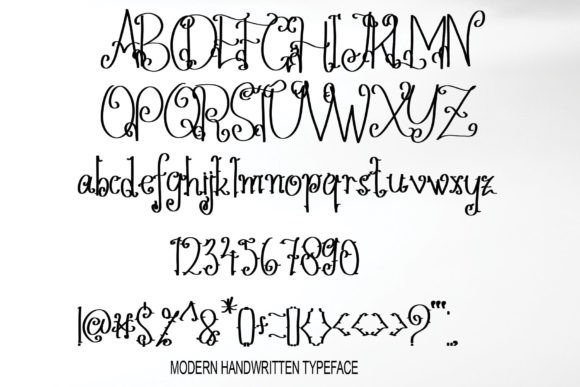 ABCDEFGHIJKLMN
OPQRSTUVWXYZ
abcdefghijklmnopqrstuvwxyz
1234567890
!@#$%^&*()+={}<<>>?"';:,
MODERN HANDWRITTEN TYPEFACE